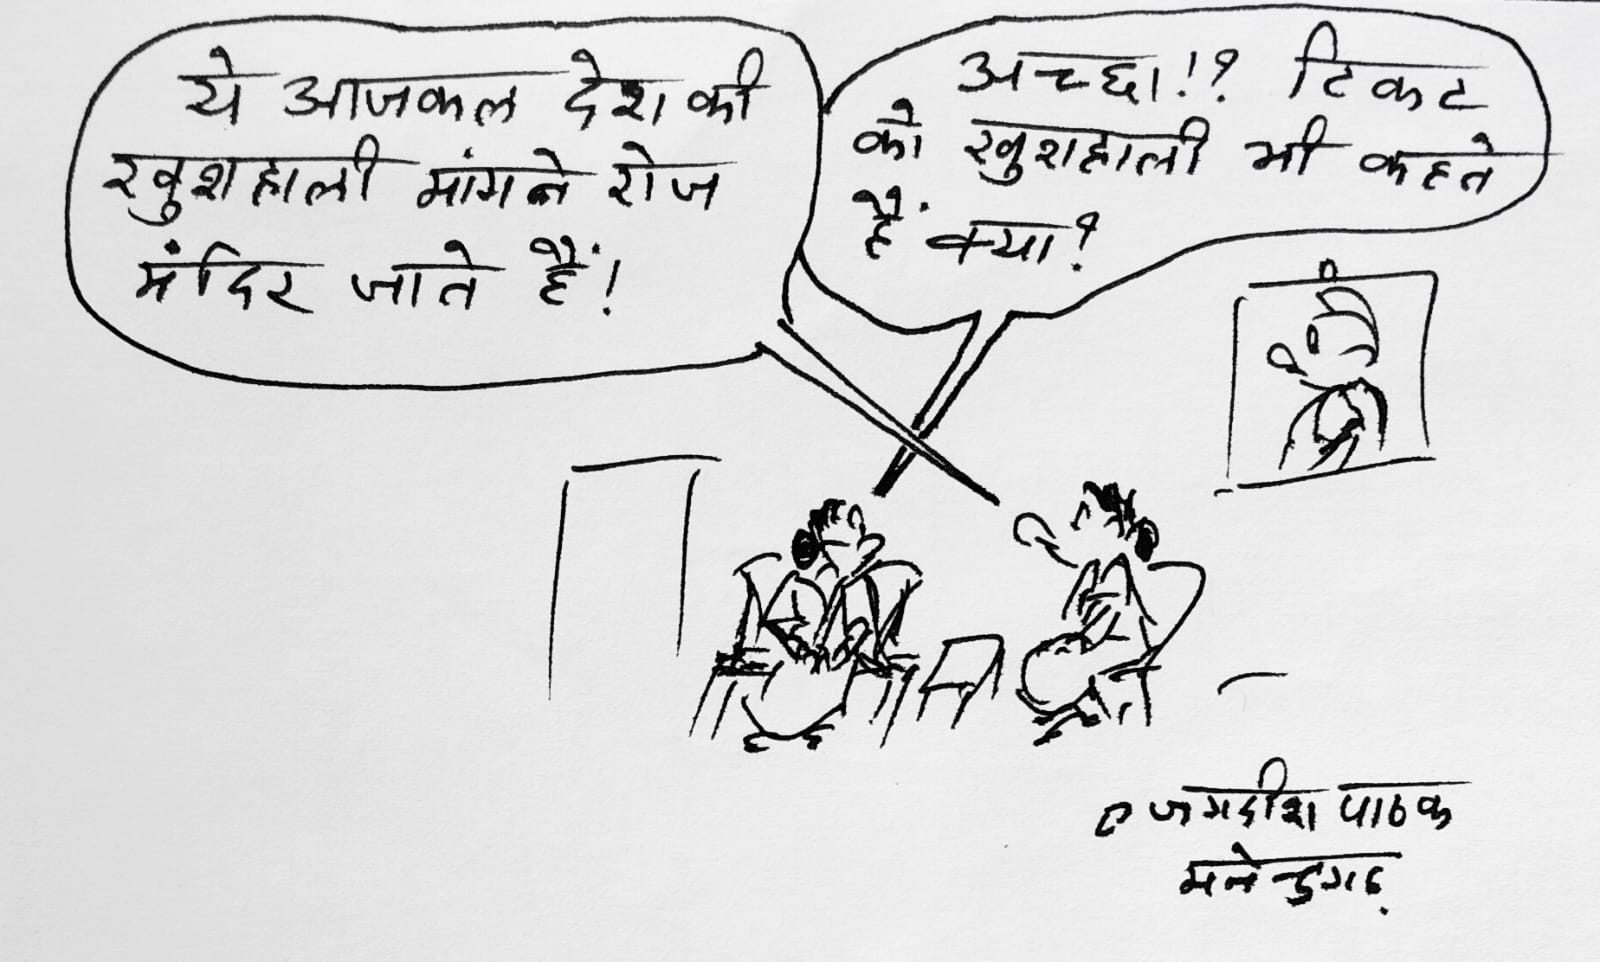 ये आजकल देश की
खुशहाली मांगने रोज
मंदिर जाते हैं!
अच्छा!? टिकट
को खुशहाली भी कहते
हैं क्या?
जगदीश पाठक
मनेन्द्रगढ़